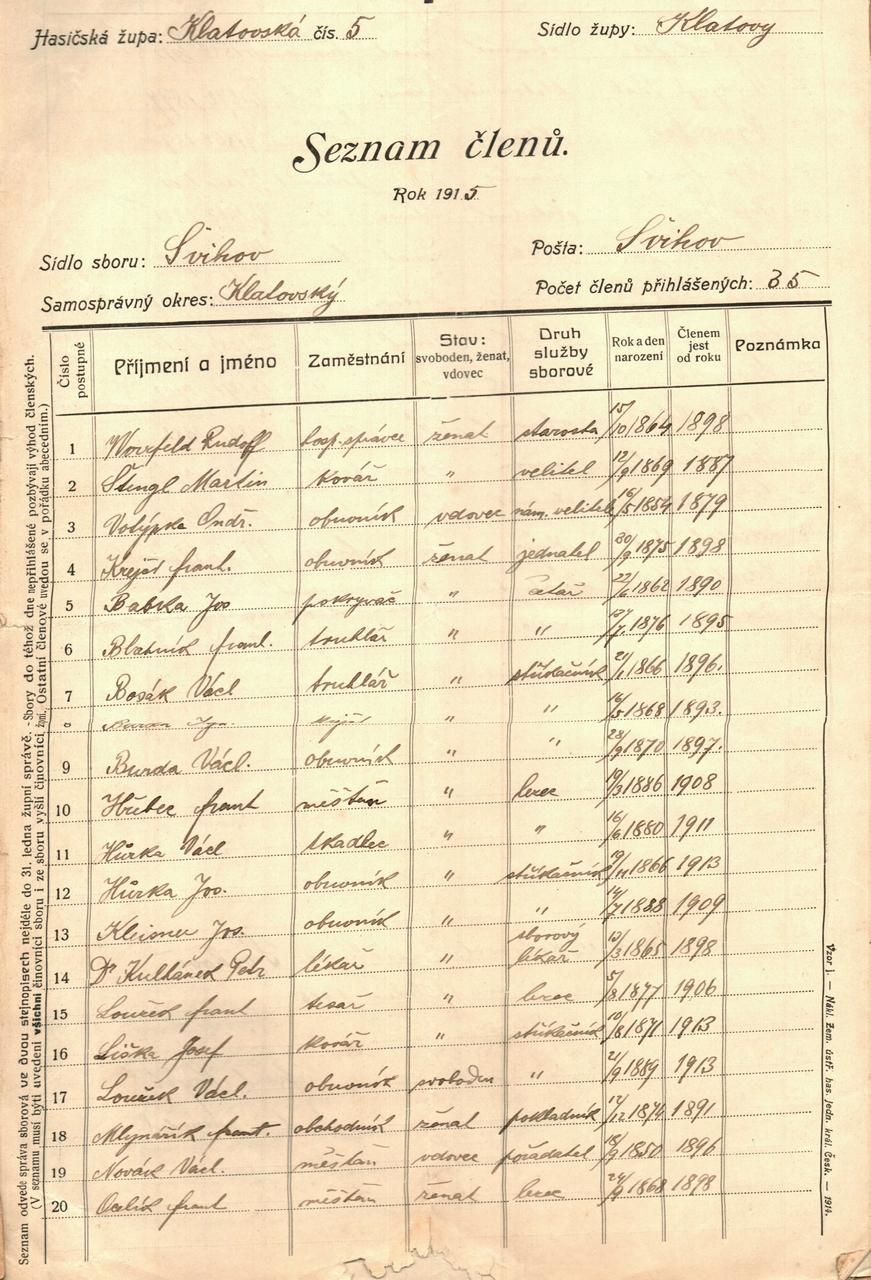 Hasičská župa: Klatovská čís. 5 Sídlo župy: Klatovy
Seznam členů.
Rok 1915
Sídlo sboru: Švihov Pošta: Švihov
Samosprávný okres: Klatovský Počet členů přihlášených: 35
Číslo postupné Příjmení a jméno Zaměstnání Stav: svoboden, ženat, vdovec Druh služby sborové Rok a den narození Členem jest od roku Poznámka
1 Rudolf hosp. správce ženat starosta 15/10 1864 1898
2 Štingl Martin kovář " velitel 12/9 1869 1887
3 Votýpka Ondř. obuvník vdovec nám. velitele 16/5 1854 1879
4 Krejčí frant. obuvník ženat jednatel 20/9 1875 1898
5 Babka Jos pokrývač " 22/6 1862 1890
6 Blatník frant. truhlář " " 1876 1895
7 Bosák Václ truhlář " stříkačník 21/1 1866 1896.
8 krejčí " " 16/5 1868 1893.
9 Burda Václ. obuvník " " 28/9 1870 1897.
10 Hřebec frant měšťan " lezec 19/3 1886 1908
11 Hůrka Václ tkadlec " " 16/6 1880 1911
12 Hůrka Jos. obuvník " stříkačník 19/11 1866 1913
13 Kleisner Jos. obuvník " " 14/7 1888 1909
14 Dr Kultánek Petr lékař " sborový lékař 13/3 1865 1898
15 Louřek frant tesař " lezec 5/8 1877 1906
16 Liška Josef kovář " stříkačník 10/8 1871 1913
17 Louřek Václ. obuvník svoboden " 21/9 1889 1913
18 Mlynařík frant. obchodník ženat pokladník 14/12 1876 1891
19 Novák Václ. měšťan vdovec pořadatel 18/9 1850 1896
20 frant měšťan ženat lezec 24/9 1868 1898
Seznam odvede správa sborová ve dvou stejnopisech nejdéle do 31. ledna župní správě. - Sbory do téhož dne nepřihlášené pozbývají výhod členských.
(V seznamu musí býti uvedeni všichni činovníci sboru i ze sboru vyšlí činovníci žpní. Ostatní členové uvedou se v pořádku abecedním.)
Vzor j. — Nákl. zem. ústř. has. jedn. král. Česk. — 1914.